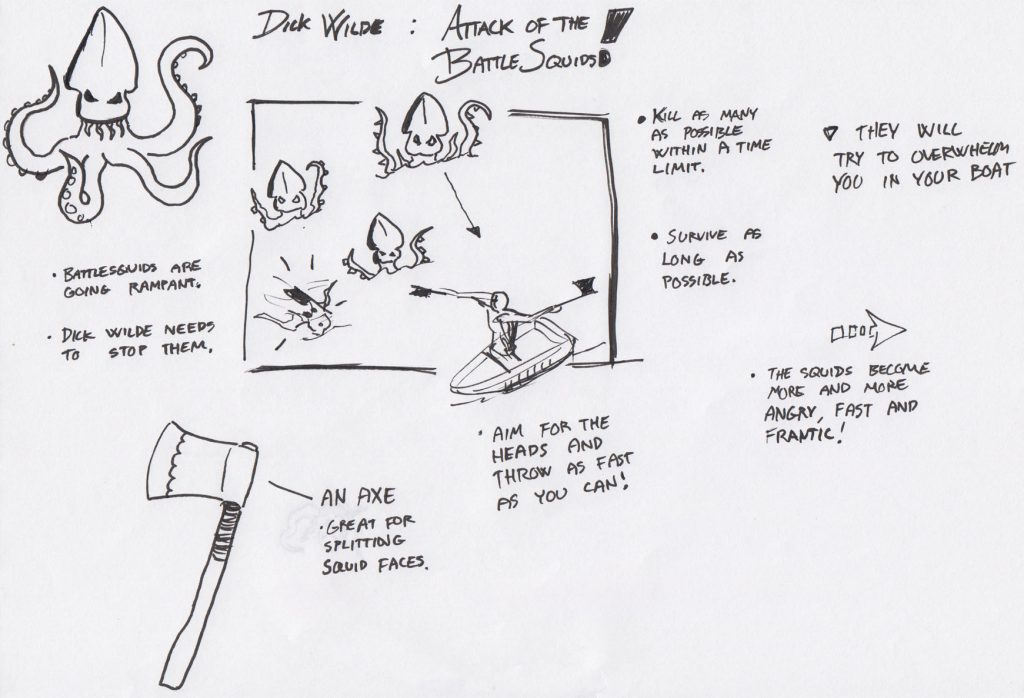 DICK WILDE : ATTACK OF THE
BATTLESQUIDS!
• KILL AS MANY
AS POSSIBLE
WITHIN A TIME
LIMIT.
THEY WILL
TRY TO OVERWHELM
YOU IN YOUR BOAT
• SURVIVE AS
LONG AS
POSSIBLE.
• BATTLESQUIDS ARE
GOING RAMPANT.
• DICK WILDE NEEDS
TO STOP THEM.
• THE SQUIDS BECOME
MORE AND MORE
ANGRY, FAST AND
FRANTIC!
• AIM FOR THE
HEADS AND
THROW AS FAST
AS YOU CAN!
AN AXE
• GREAT FOR
SPLITTING
SQUID FACES.